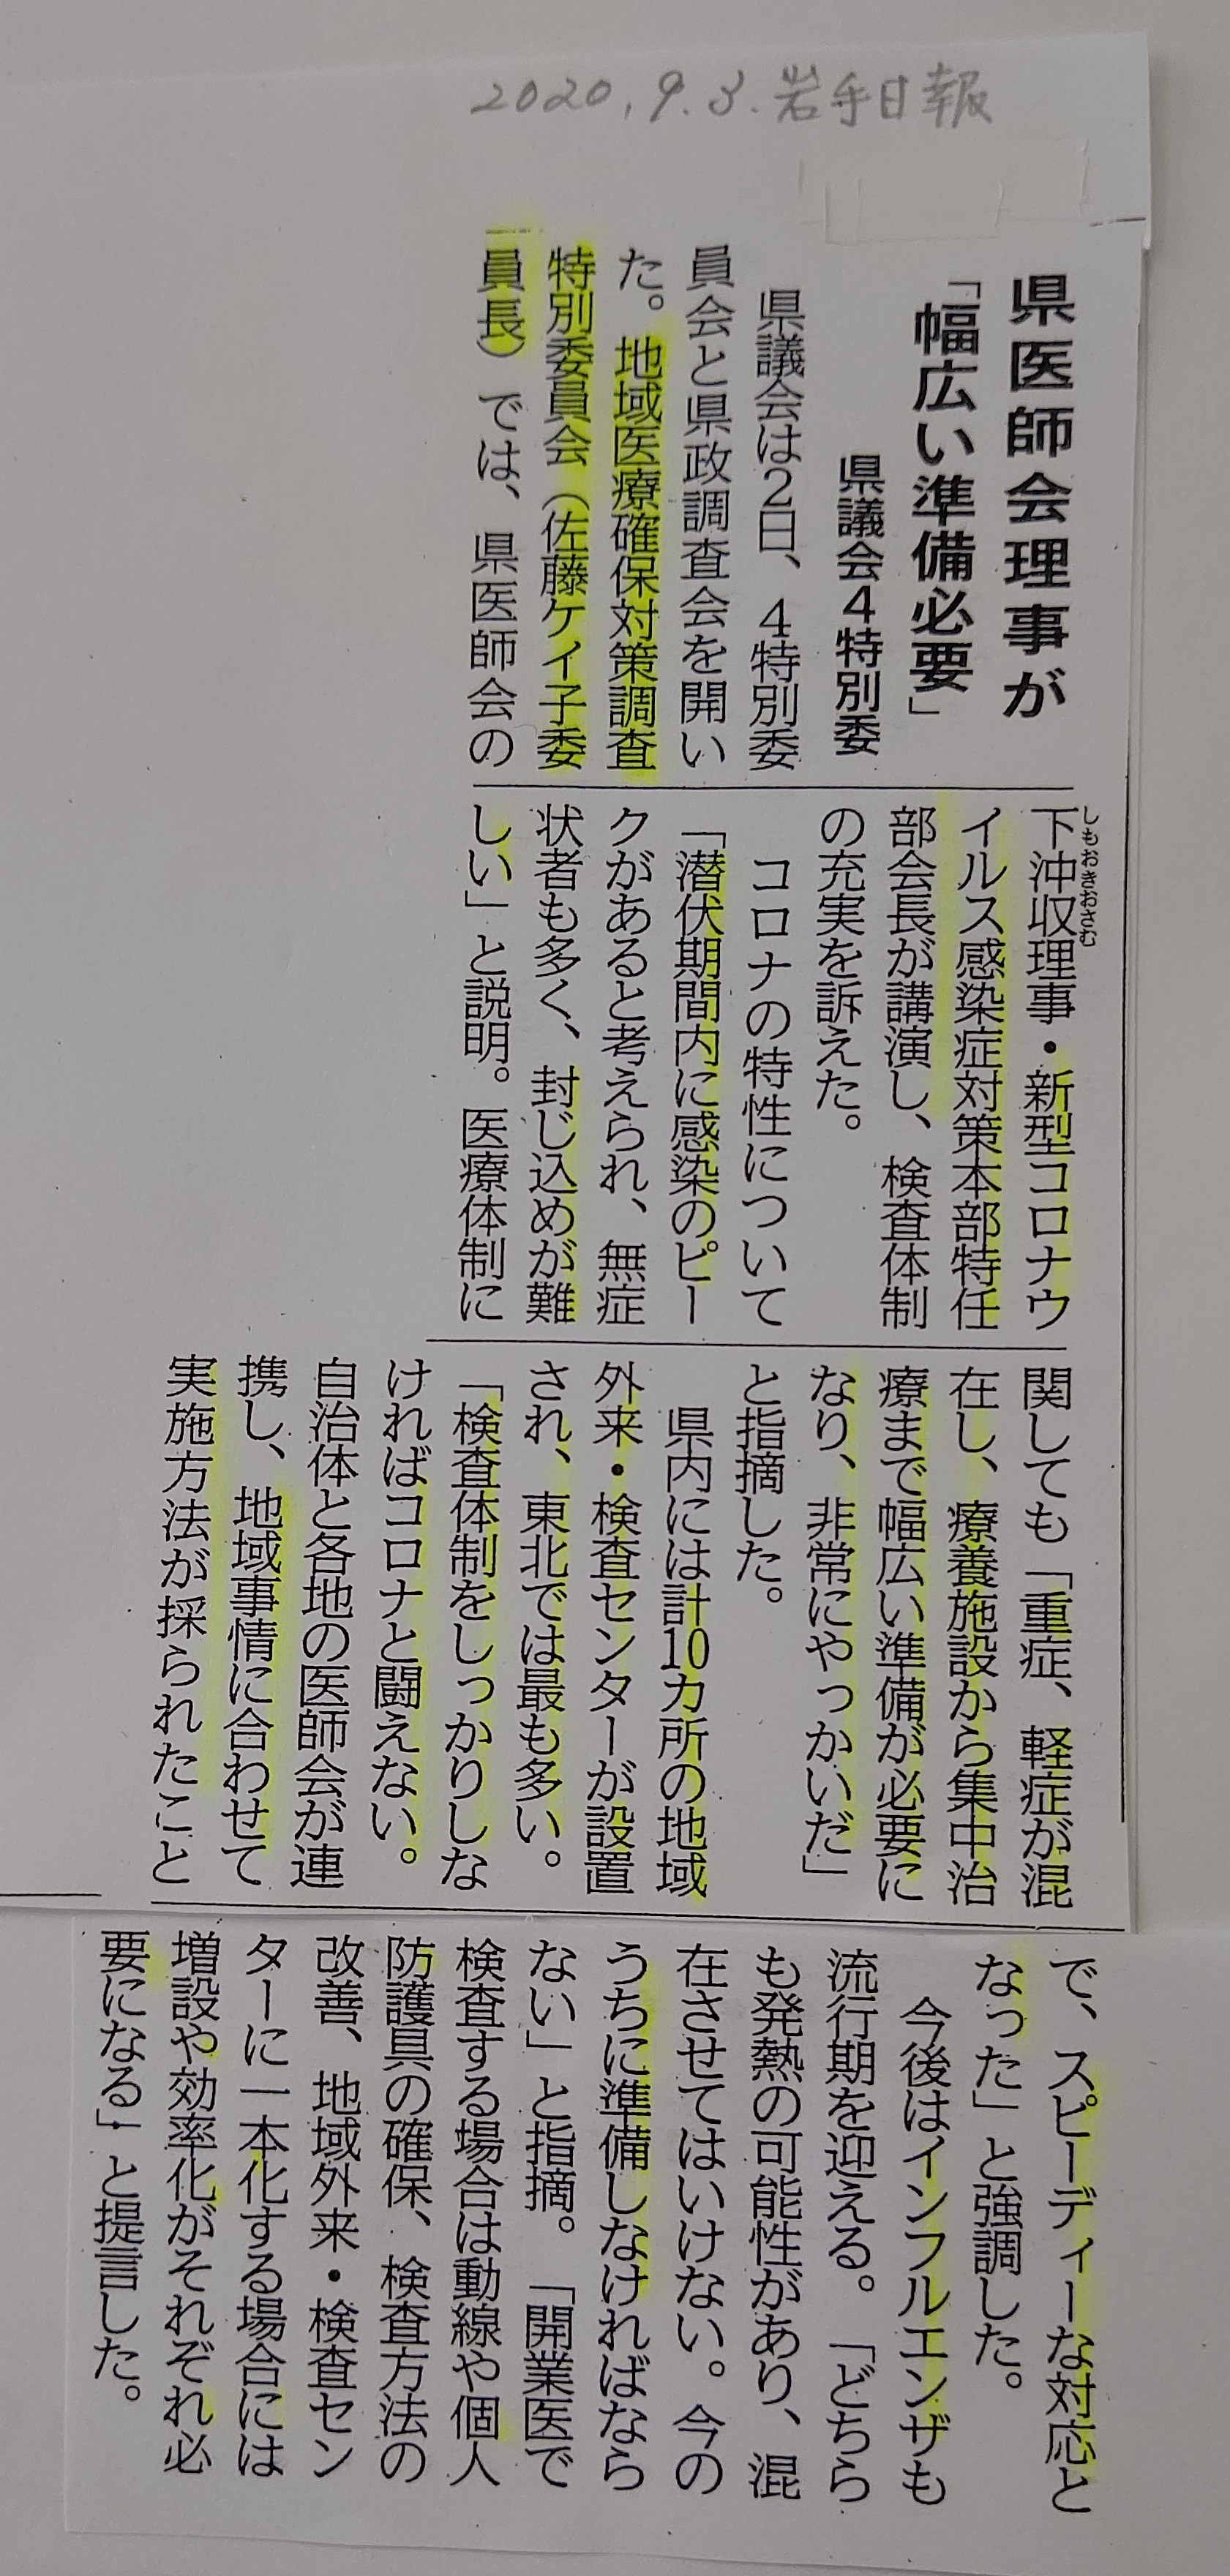 2020.9.3.岩手日報
県医師会理事が
「幅広い準備必要」
県議会4特別委
県議会は2日、4特別委
員会と県政調査会を開い
た。地域医療確保対策調査
特別委員会(佐藤ケイ子委
員長)では、県医師会の
下沖収理事・新型コロナウ
しもおきおさむ
イルス感染症対策本部特任
部会長が講演し、検査体制
の充実を訴えた。
コロナの特性について
「潜伏期間内に感染のピー
クがあると考えられ、無症
状者も多く、封じ込めが難
しい」と説明。医療体制に
関しても「重症、軽症が混
在し、療養施設から集中治
療まで幅広い準備が必要に
なり、非常にやっかいだ」
と指摘した。
県内には計10カ所の地域
外来・検査センターが設置
され、東北では最も多い。
「検査体制をしっかりしな
ければコロナと闘えない。
自治体と各地の医師会が連
携し、地域事情に合わせて
実施方法が採られたこと
で、スピーディーな対応と
なった」と強調した。
今後はインフルエンザも
流行期を迎える。「どちら
も発熱の可能性があり、混
在させてはいけない。今の
うちに準備しなければなら
ない」と指摘。「開業医で
検査する場合は動線や個人
防護具の確保、検査方法の
改善、地域外来・検査セン
ターに一本化する場合には
増設や効率化がそれぞれ必
要になる」と提言した。